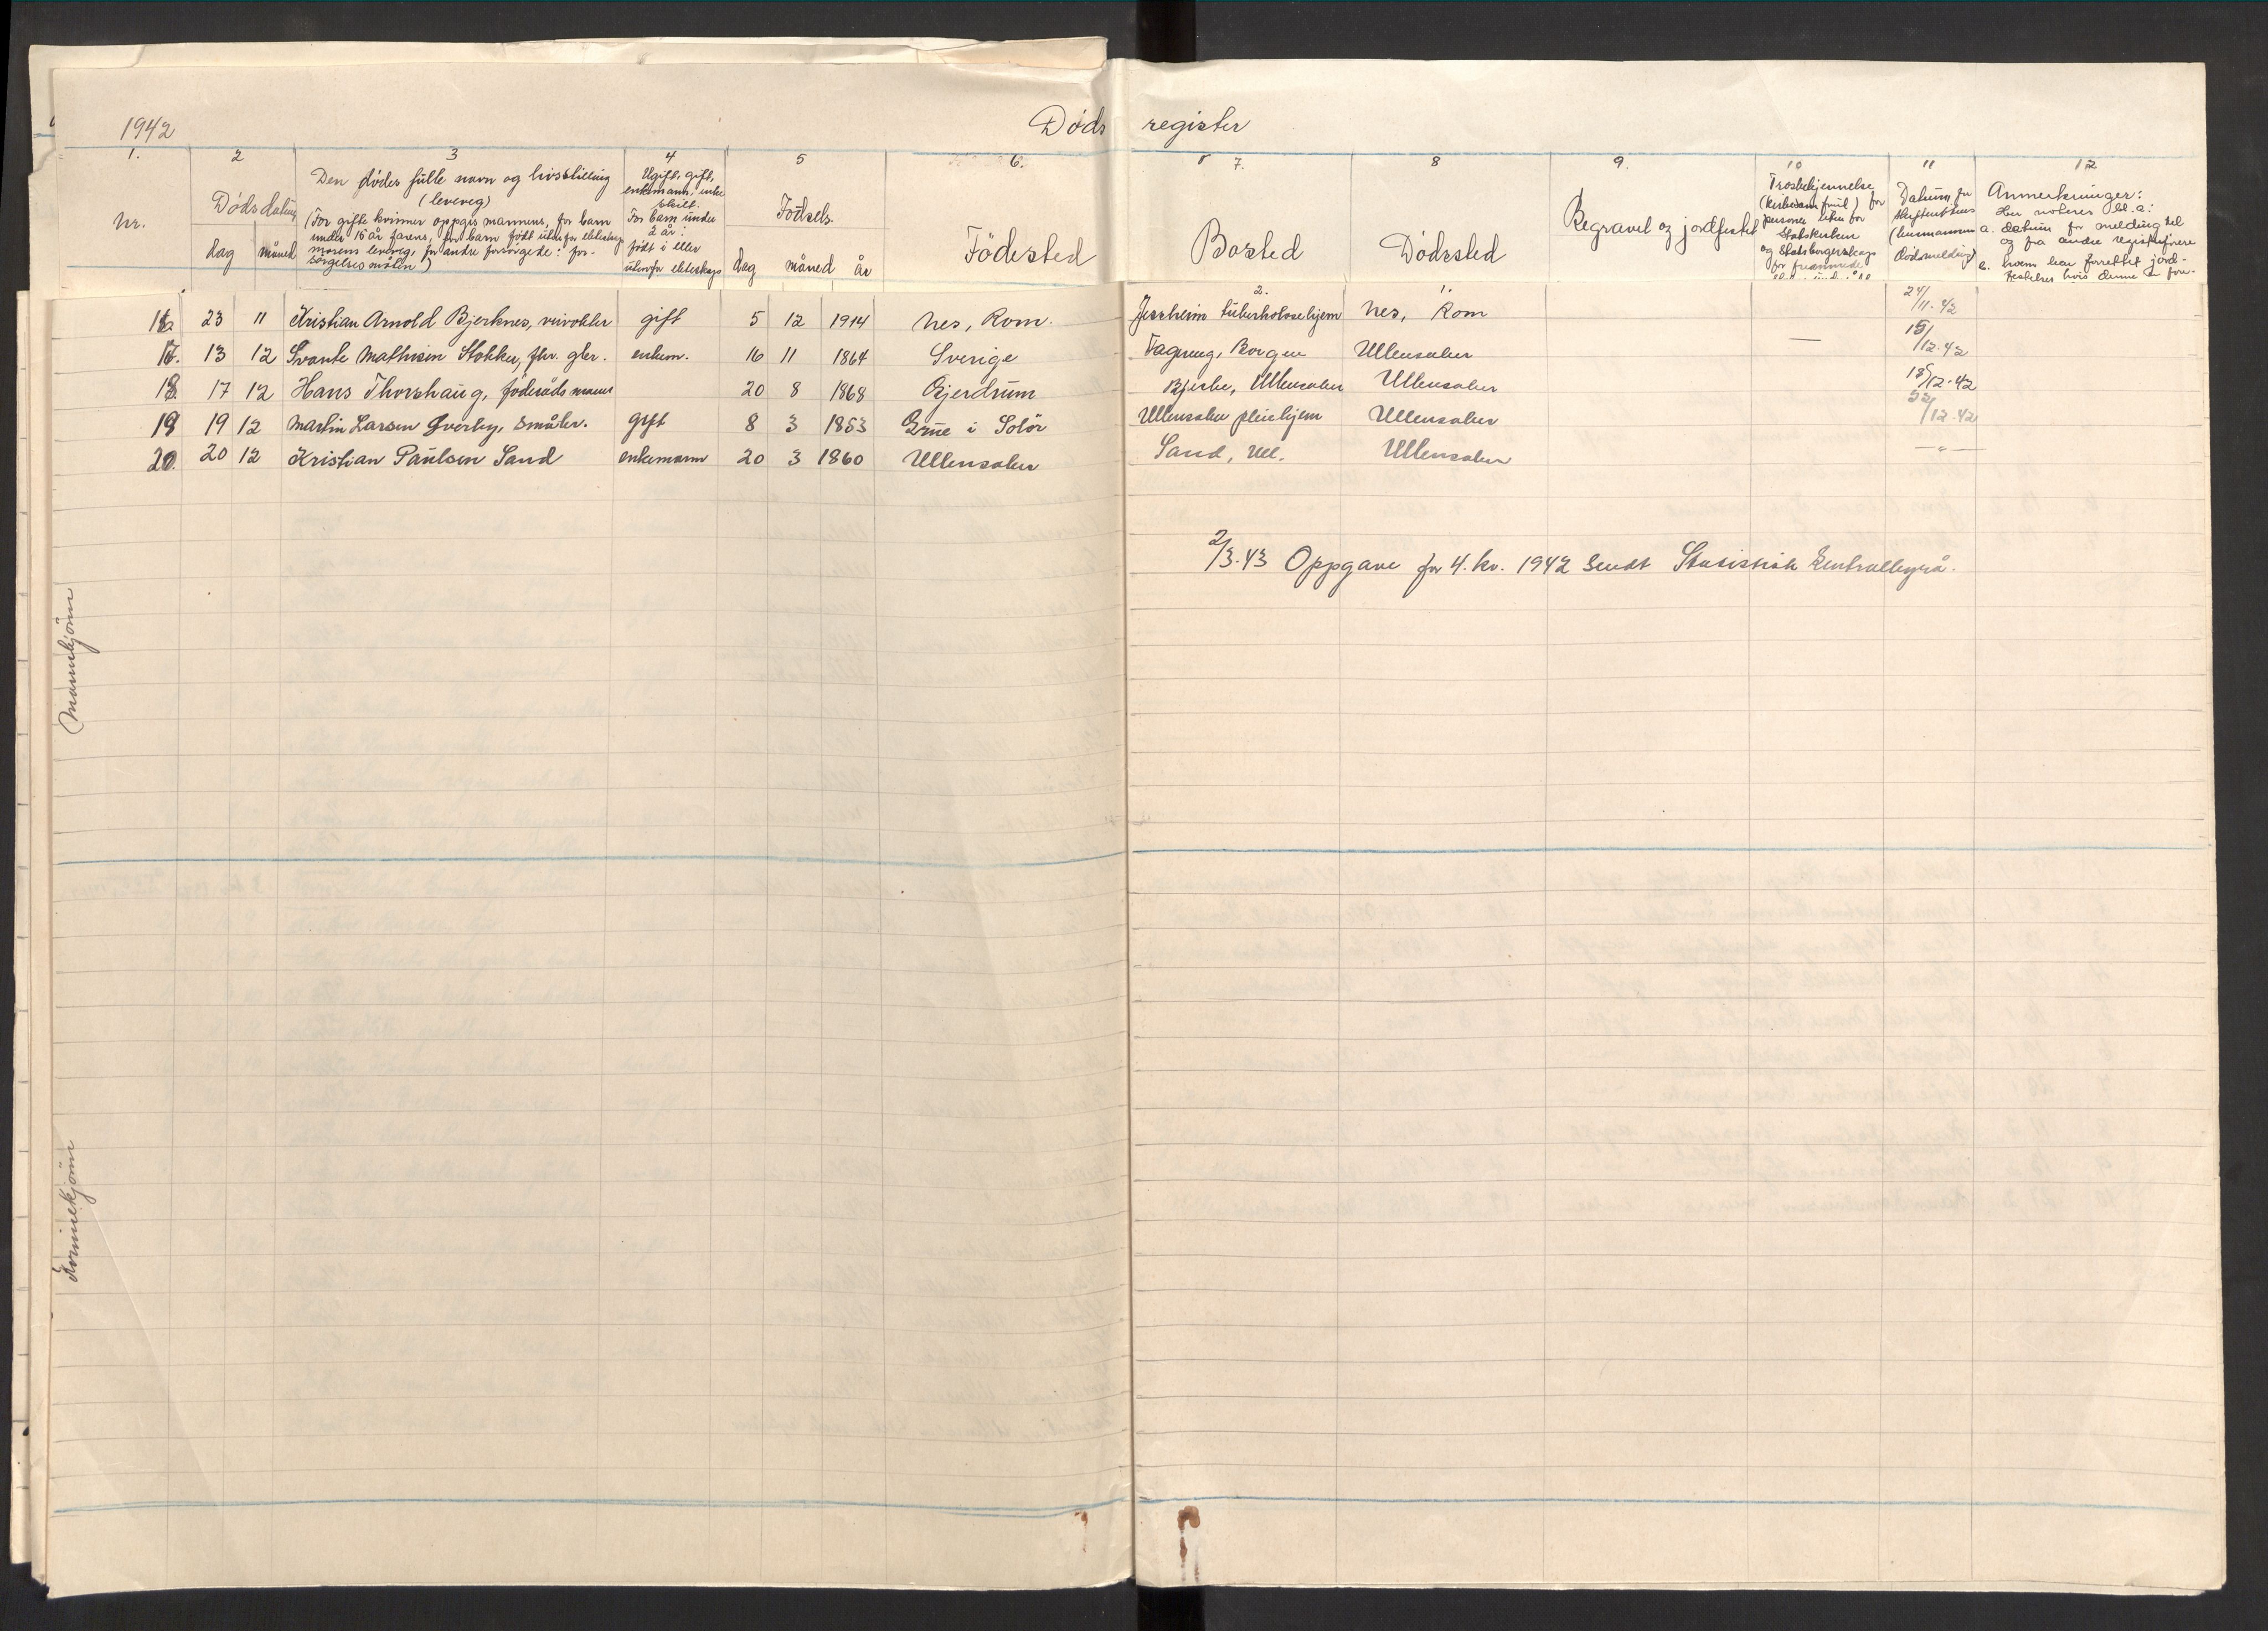 1942 Døds register
1. 2 3 4 5 6. 7. 8 9. 10 11 12
Nr.
Dødsdatum
dag måned
Den dødes fulle navn og livsstilling
(leveveg)
(For gifte kvinner oppgis mannens, for barn
under 15 år farens, for barn født utenfor ekteskap
morens leveveg, for andre forsørgede: for-
sørgelsesmåten)
Ugift, gift,
enkemann, enke
skilt.
For barn under
2 år:
født i eller
utenfor ekteskap
Fødsels
dag måned år
Födested
Bosted
Dödssted
Begravet og jordfestet
Trosbekjennelse
(kirkesamfunn) for
personer uten for
Statskirken
og Statsborgerskap
for fremmede
Datum for
skifterettens
(lensmannens
dødsmelding)
Anmerkninger:
Her noteres bl. a:
a. datum for melding til
og fra andre registerførere
b. hvem har forrettet jord-
festelsen hvis denne er fore-
16 23 11 Kristian Arnold Bjerknes, reivokter gift 5 12 1914 Nes, Rom. Jessheim tuberkulosehjem Nes, Rom 24/11-42
17. 13 12 Svante Mathisen Stokker, fhr. gbr. enkem. 16 11 1864 Sverige Fagereng, Borgen Ullensaker — 15/12-42
18. 17 12 Hans Thorshaug, föderåds mann 20 8 1868 Gjerdrum Bjerke, Ullensaker Ullensaker 18/12-42
19 19 12 Martin Larsen Øverby, småbr. gift 8 3 1853 Grue i Solör Ullensaker pleiehjem Ullensaker 22/12-42
20. 20 12 Kristian Paulsen Sand enkemann 20 3 1860 Ullensaker Sand, Ull. Ullensaker —"—
2/3-43 Oppgave for 4. kv. 1942 sendt Statistisk Sentralbyrå.
Mannekjønn
Kvinnekjønn